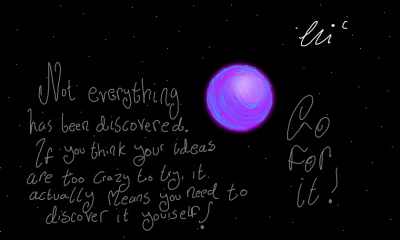 Not everything
has been discovered.
If you think your ideas
are too crazy to try, it
actually means you need to
discover it youself!
Go
For
it!